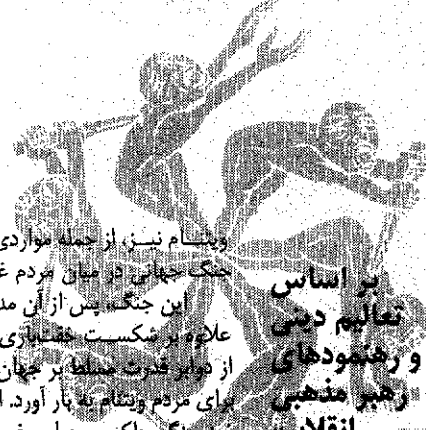 بر اساس
تعالیم دینی
و رهنمودهای
رهبر مذهبی
انقلاب
ویتنام نیز، از جمله مواردی
جنگ جهانی در میان مردم
این جنگ، پس از آن
علاوه بر شکست خفت‌باری
از دوایر قدرت مسلط بر جهان
برای مردم ویتنام به بار آورد.